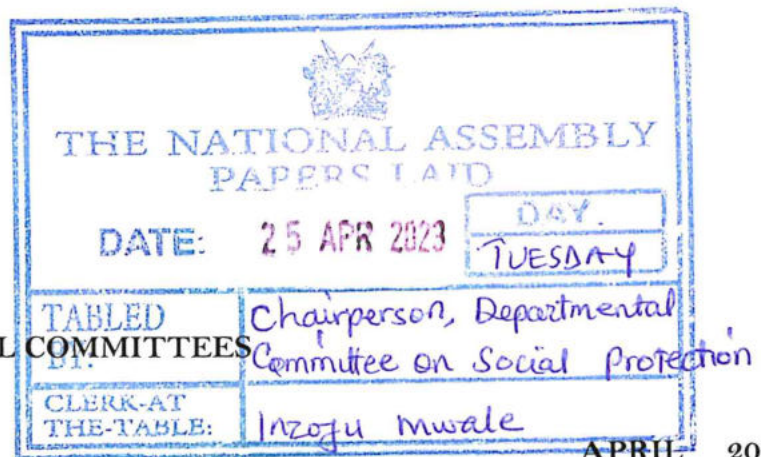 THE NATIONAL ASSEMBLY
PAPERS LAID
DATE: 25 APR 2023
DAY.
TUESDAY
TABLED BY:
Chairperson, Departmental
Committee on Social Protection
L COMMITTEES
CLERK-AT
THE-TABLE:
Inzofu Mwale
APRIL 20